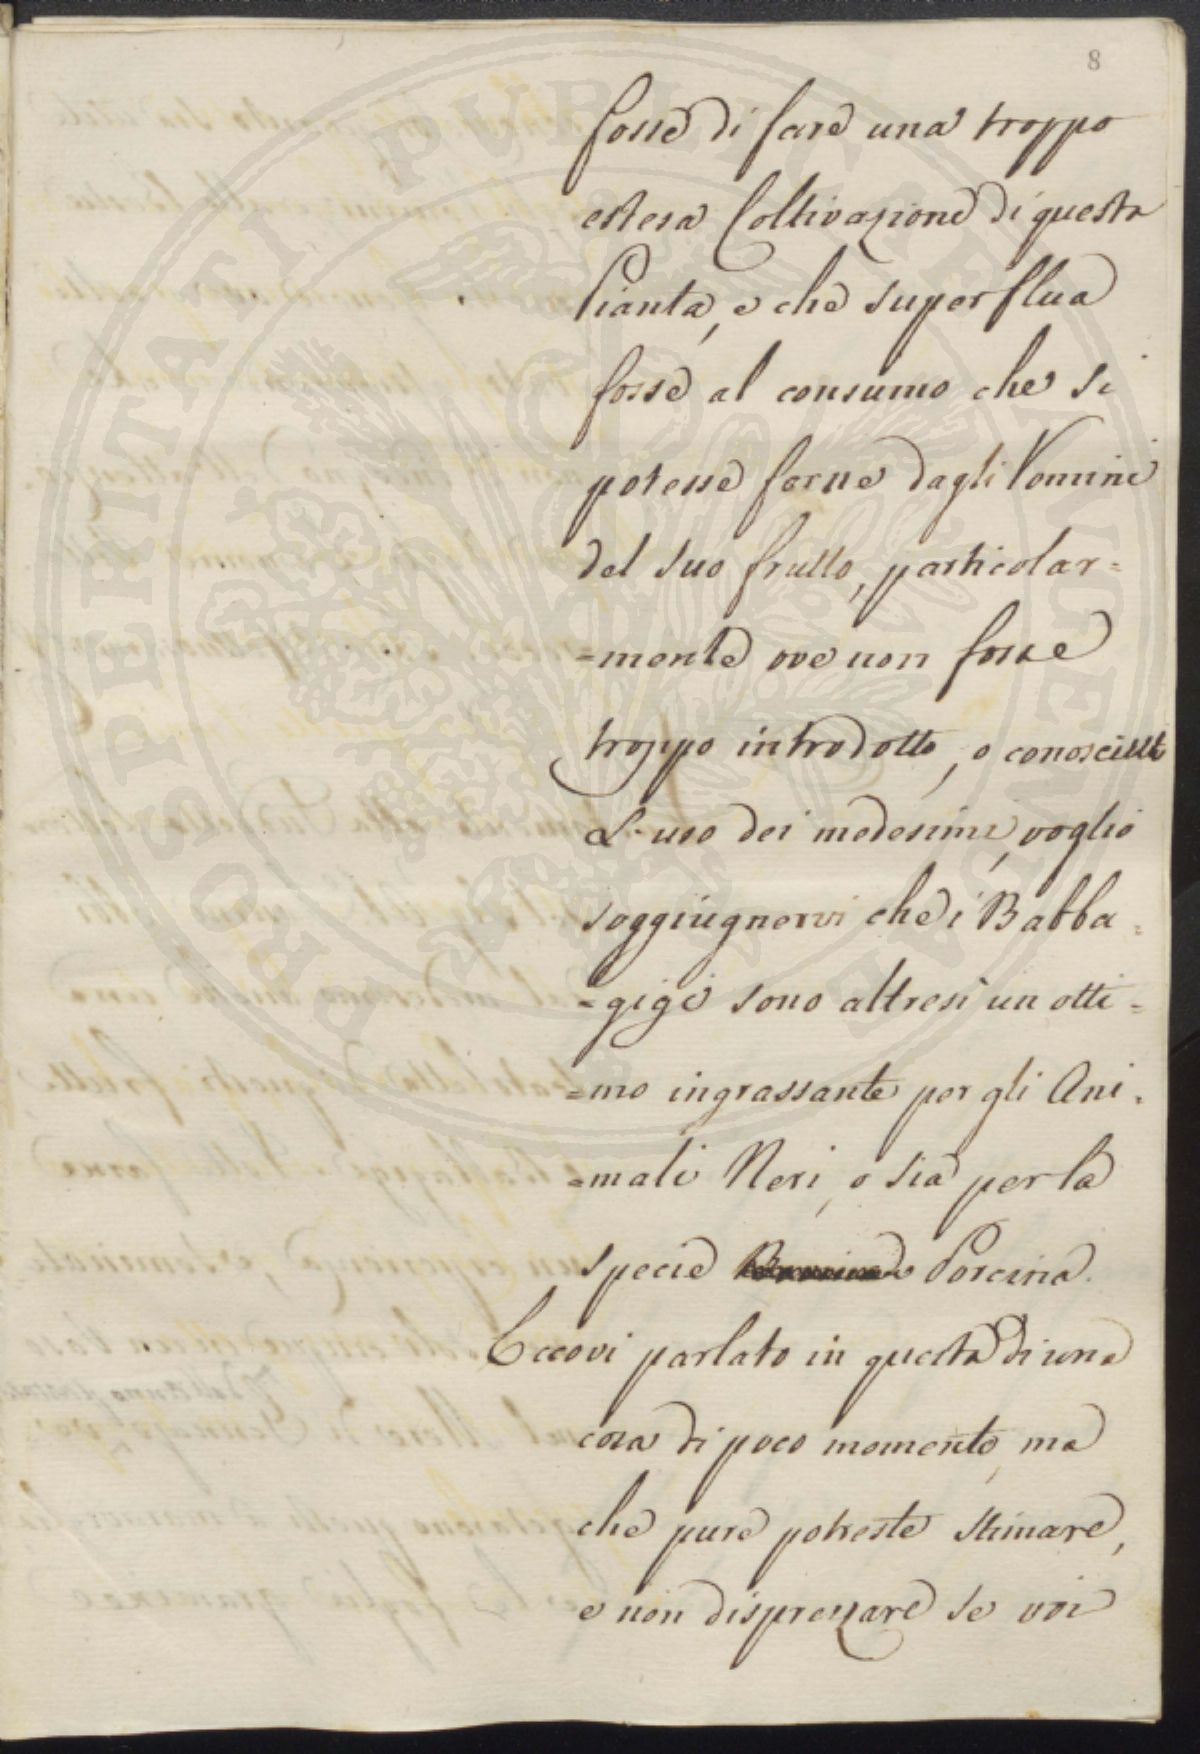 8
fosse di fare una troppo
estesa Coltivazione di questa
Pianta, e che superflua
fosse al consumo che si
potesse farne dagli Vomini
del suo frutto, particolar=
=mente ove non fosse
troppo introdotto, o conosciuto
L'uso dei medesimi, voglio
soggiugnervi che i Babba=
=gigi sono altresì un otti=
=mo ingrassante per gli Ani=
=mali Neri, o sia per la
specie Porcina.
Eccovi parlato in questa di una
cosa di poco momento, ma
che pure potreste stimare,
e non disprezzare se voi
PROSPERITATI PUBLICAE AUGENDAE